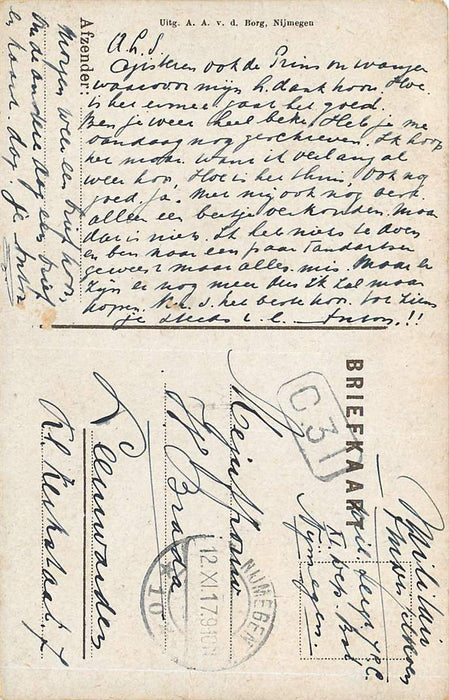 Uitg. A. A. v. d. Borg, Nijmegen
Afzender:
A. L. S.
Gisteren ook de Prins ontvangen
waarvoor mijn h. dank hoor. Hoe
is het ermee gaat het goed.
Ben je weer heel beter. Heb je me
vandaag nog geschreven. Ik hoop
het maar. Want ik verlang al
weer hoor. Hoe is het thuis. Ook nog
goed, ja. Met mij ook nog best
alleen een beetje verkouden. Maar
dat is niets. Ik heb niets te doen
en ben naar een paar Tandartsen
geweest maar alles mis. Maar er
zijn er nog meer dus ik zal maar
hopen. het beste hoor. tot ziens
je steeds Anton.!!
Morgen weer een brief hoor,
en de andere dag een brief
en kaart. dag je Anton
BRIEFKAART
C.31
Militair
Nijmegen.
NIJMEGEN
12.XI.17.
10
Mejuffrouw
Leeuwarden
Kl. Kerkstraat